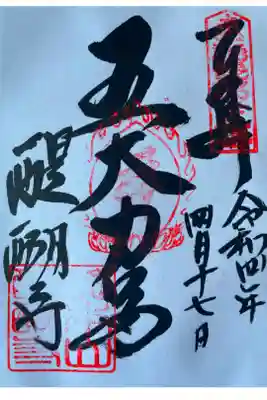 奉拝
令和四年
四月十七日
五大力尊
醍醐寺